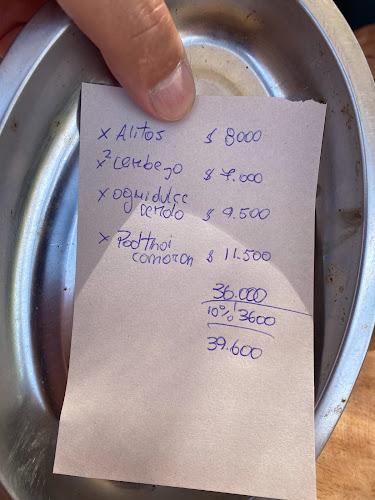 x Alitas $ 8000
x 2 Cerbeza $ 7.000
x agridulce
cerdo $ 9.500
x Padthai
camaron $ 11.500
36.000
10% 3600
39.600